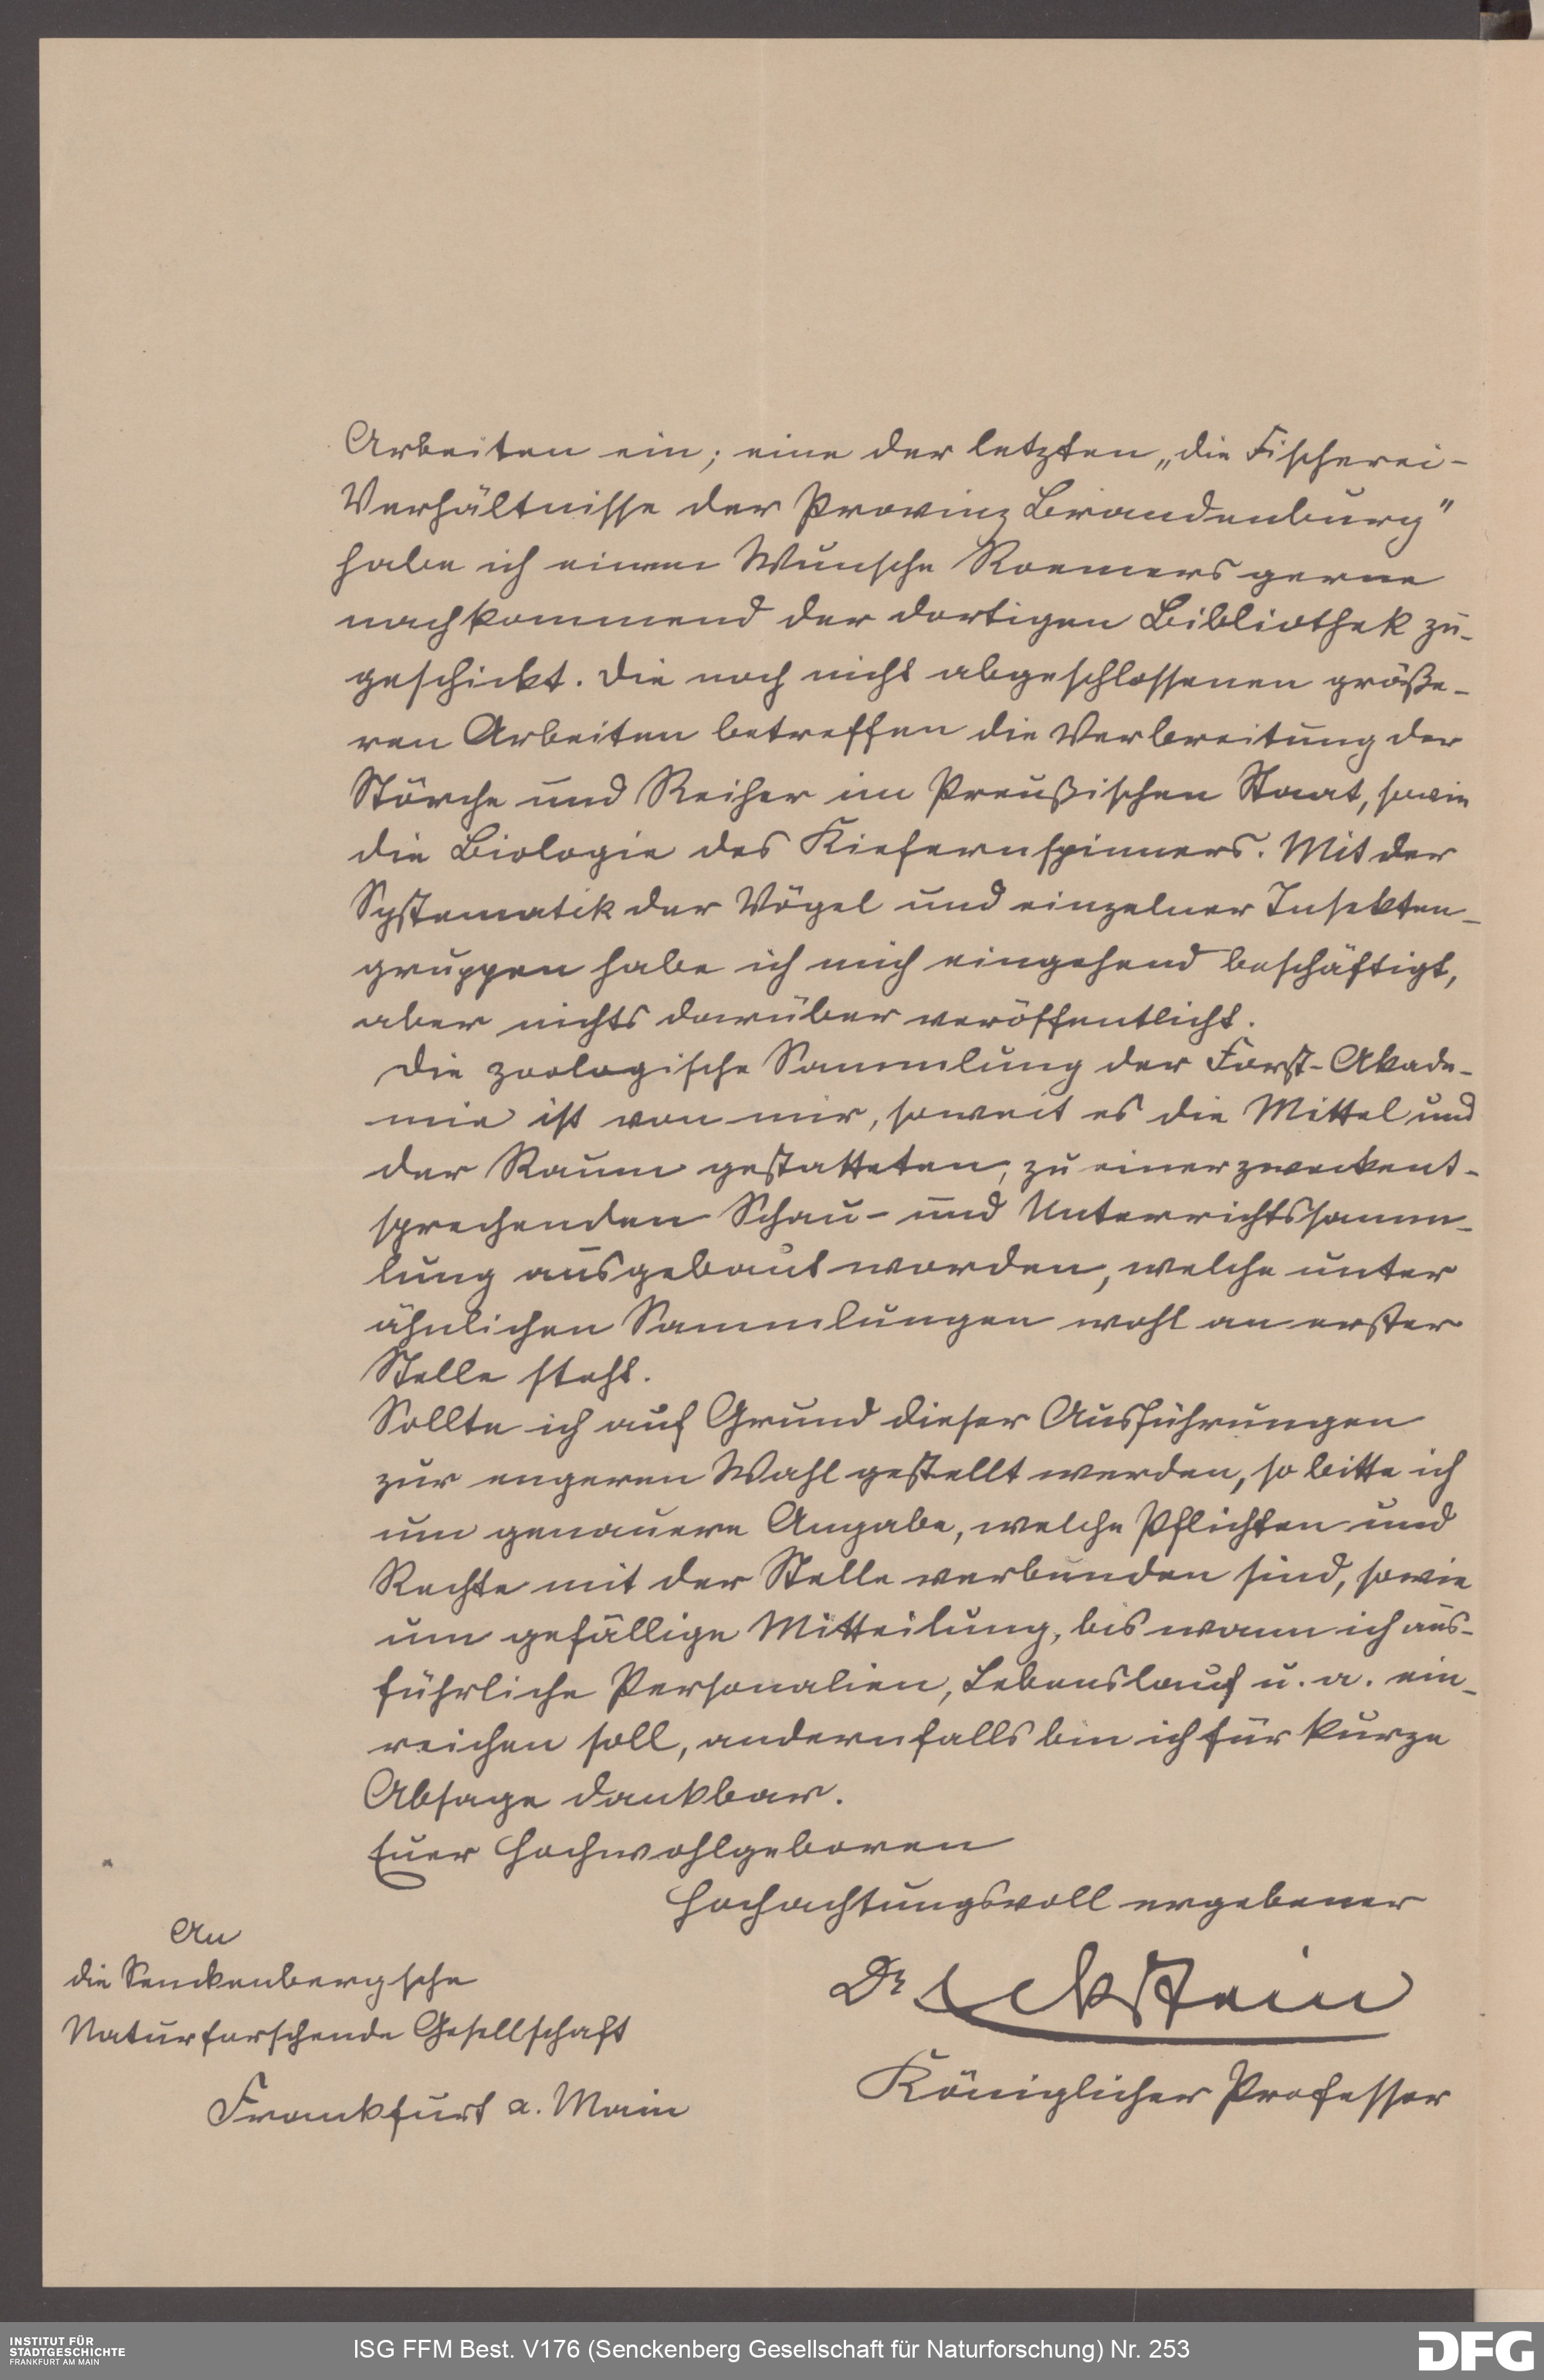 Arbeiten ein; eine der letzten „die Fischerei-
Verhältnisse der Provinz Brandenburg"
habe ich einem Wunsche Roemers gerne
nachkommend der dortigen Bibliothek zu-
geschickt. Die noch nicht abgeschlossenen größe-
ren Arbeiten betreffen die Verbreitung der
Störche und Reiher im Preußischen Staat, sowie
die Biologie des Kiefernspinners. Mit der
Systematik der Vögel und einzelner Insekten-
gruppen habe ich mich eingehend beschäftigt,
aber nichts darüber veröffentlicht.
Die zoologische Sammlung der Forst-Akade-
mie ist von mir, soweit es die Mittel und
der Raum gestatteten, zu einer zweckent-
sprechenden Schau- und Unterrichtssamm-
lung ausgebaut worden, welche unter
ähnlichen Sammlungen wohl an erster
Stelle steht.
Sollte ich auf Grund dieser Ausführungen
zur engeren Wahl gestellt werden, so bitte ich
um genauere Angabe, welche Pflichten und
Rechte mit der Stelle verbunden sind, sowie
um gefällige Mitteilung, bis wann ich aus-
führliche Personalien, Lebenslauf u. a. ein-
reichen soll, andernfalls bin ich für kurze
Absage dankbar.
Euer Hochwohlgeboren
Hochachtungsvoll ergebener
Dr Eckstein
Königlicher Professor
An
die Senckenbergsche
Naturforschende Gesellschaft
Frankfurt a. Main
INSTITUT FÜR
STADTGESCHICHTE
FRANKFURT AM MAIN
ISG FFM Best. V176 (Senckenberg Gesellschaft für Naturforschung) Nr. 253
DFG